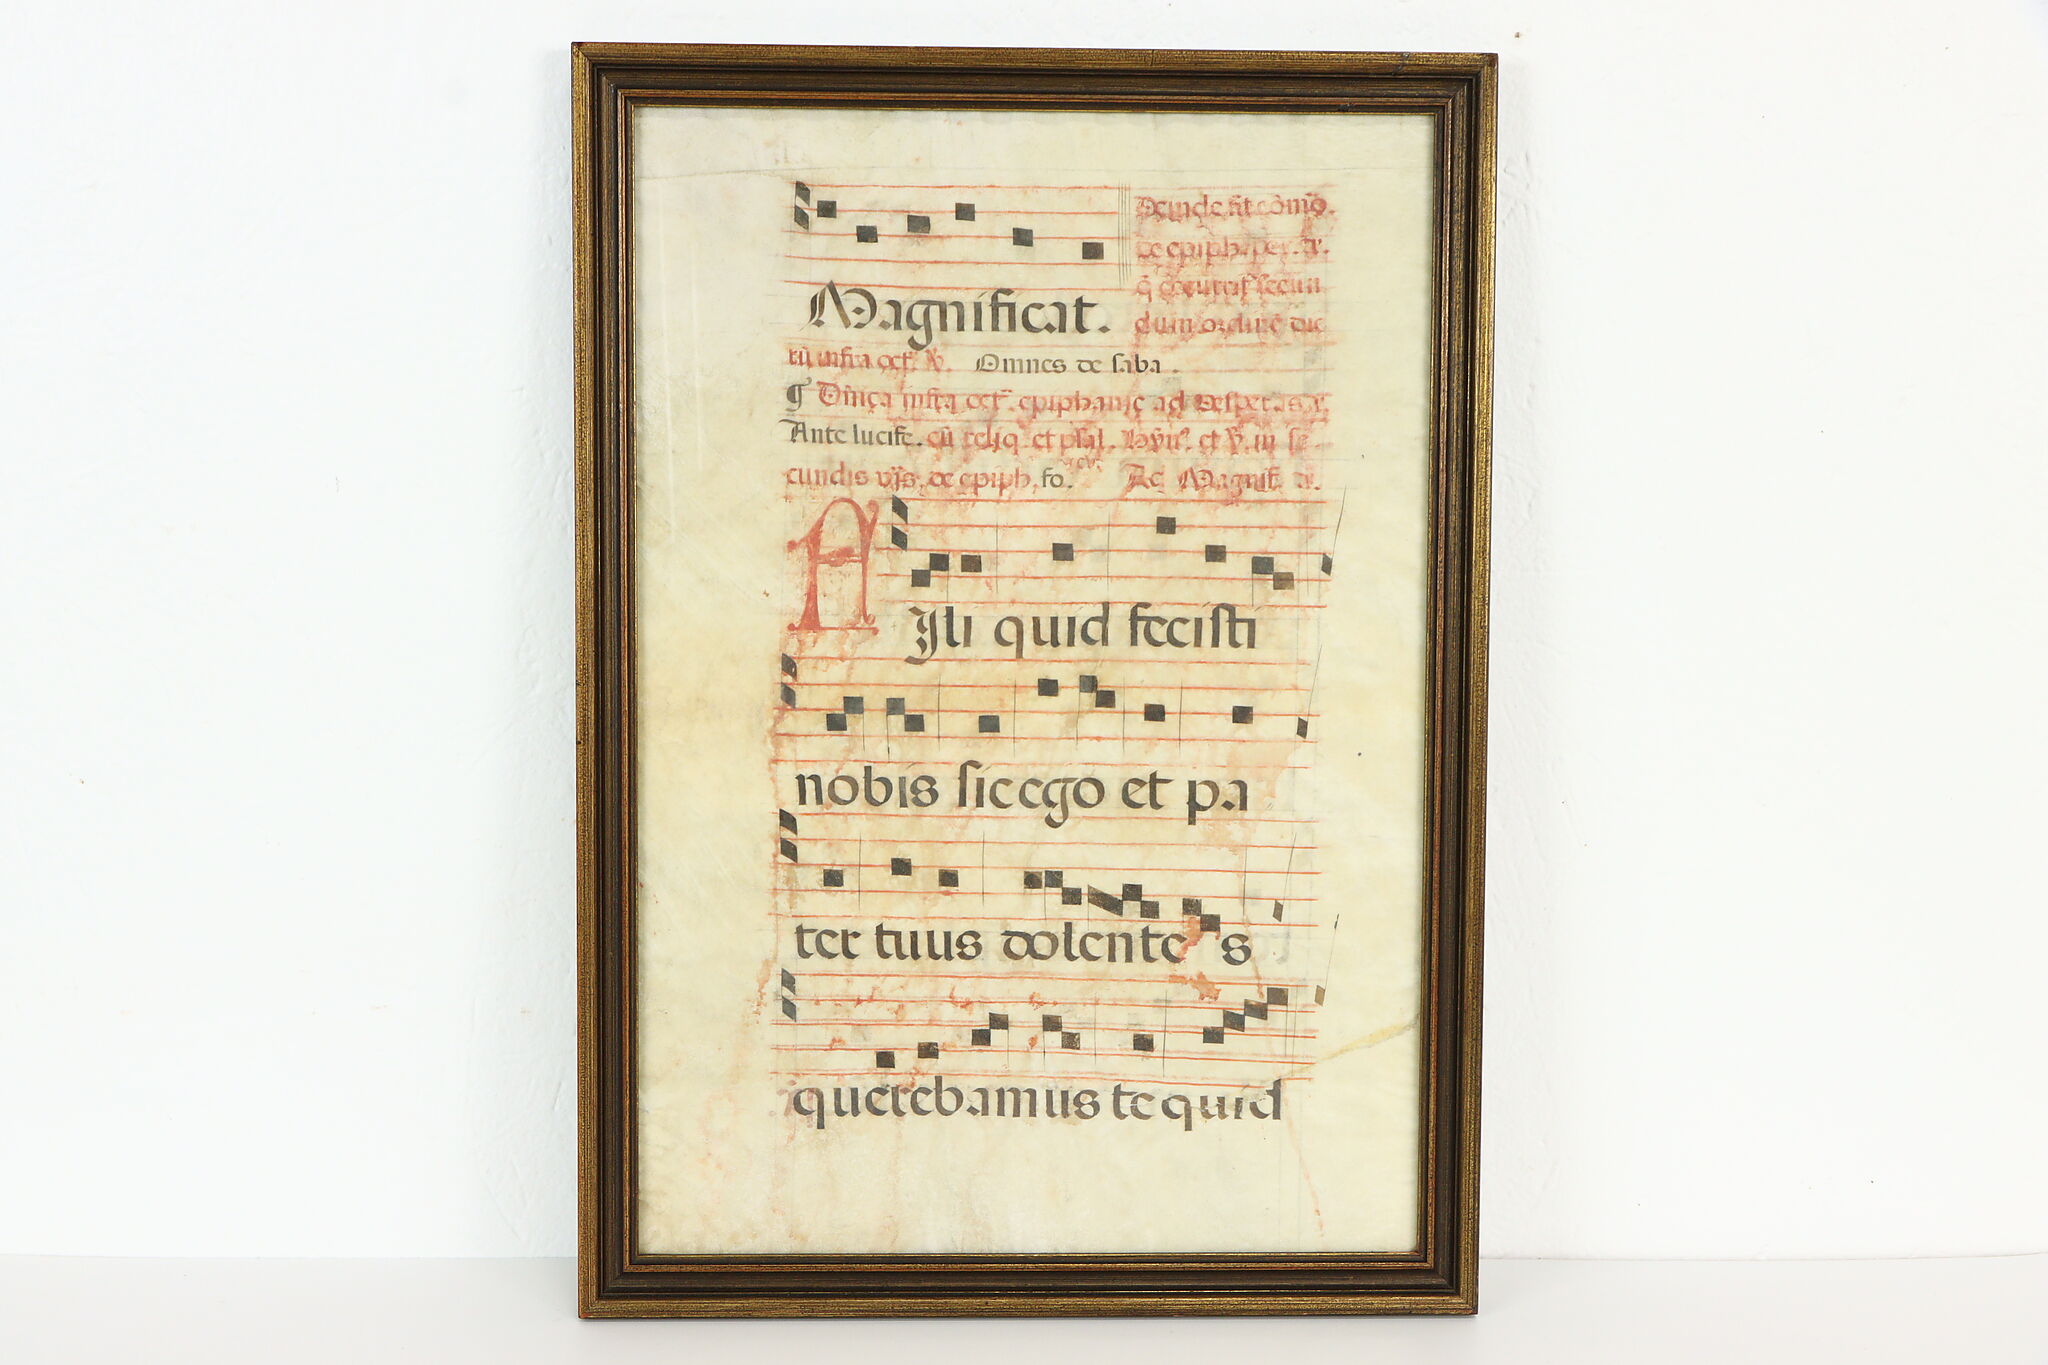 Deinde fit cōmō.
de epiph. per. ār.
dum ordinē dic
Magnificat.
tū infra oct. ℣. Omnes de saba.
¶ Dñica infra oct. epiphanie ad vesper. as. ār.
Ante lucife. cū reliq. et psal. hȳn. et ℣. in se
cundis vp̄s. de epiph. fo. Ad Magnif. ār.
Fili quid fecisti
nobis sic ego et pa
ter tuus dolente s
querebamus te quid